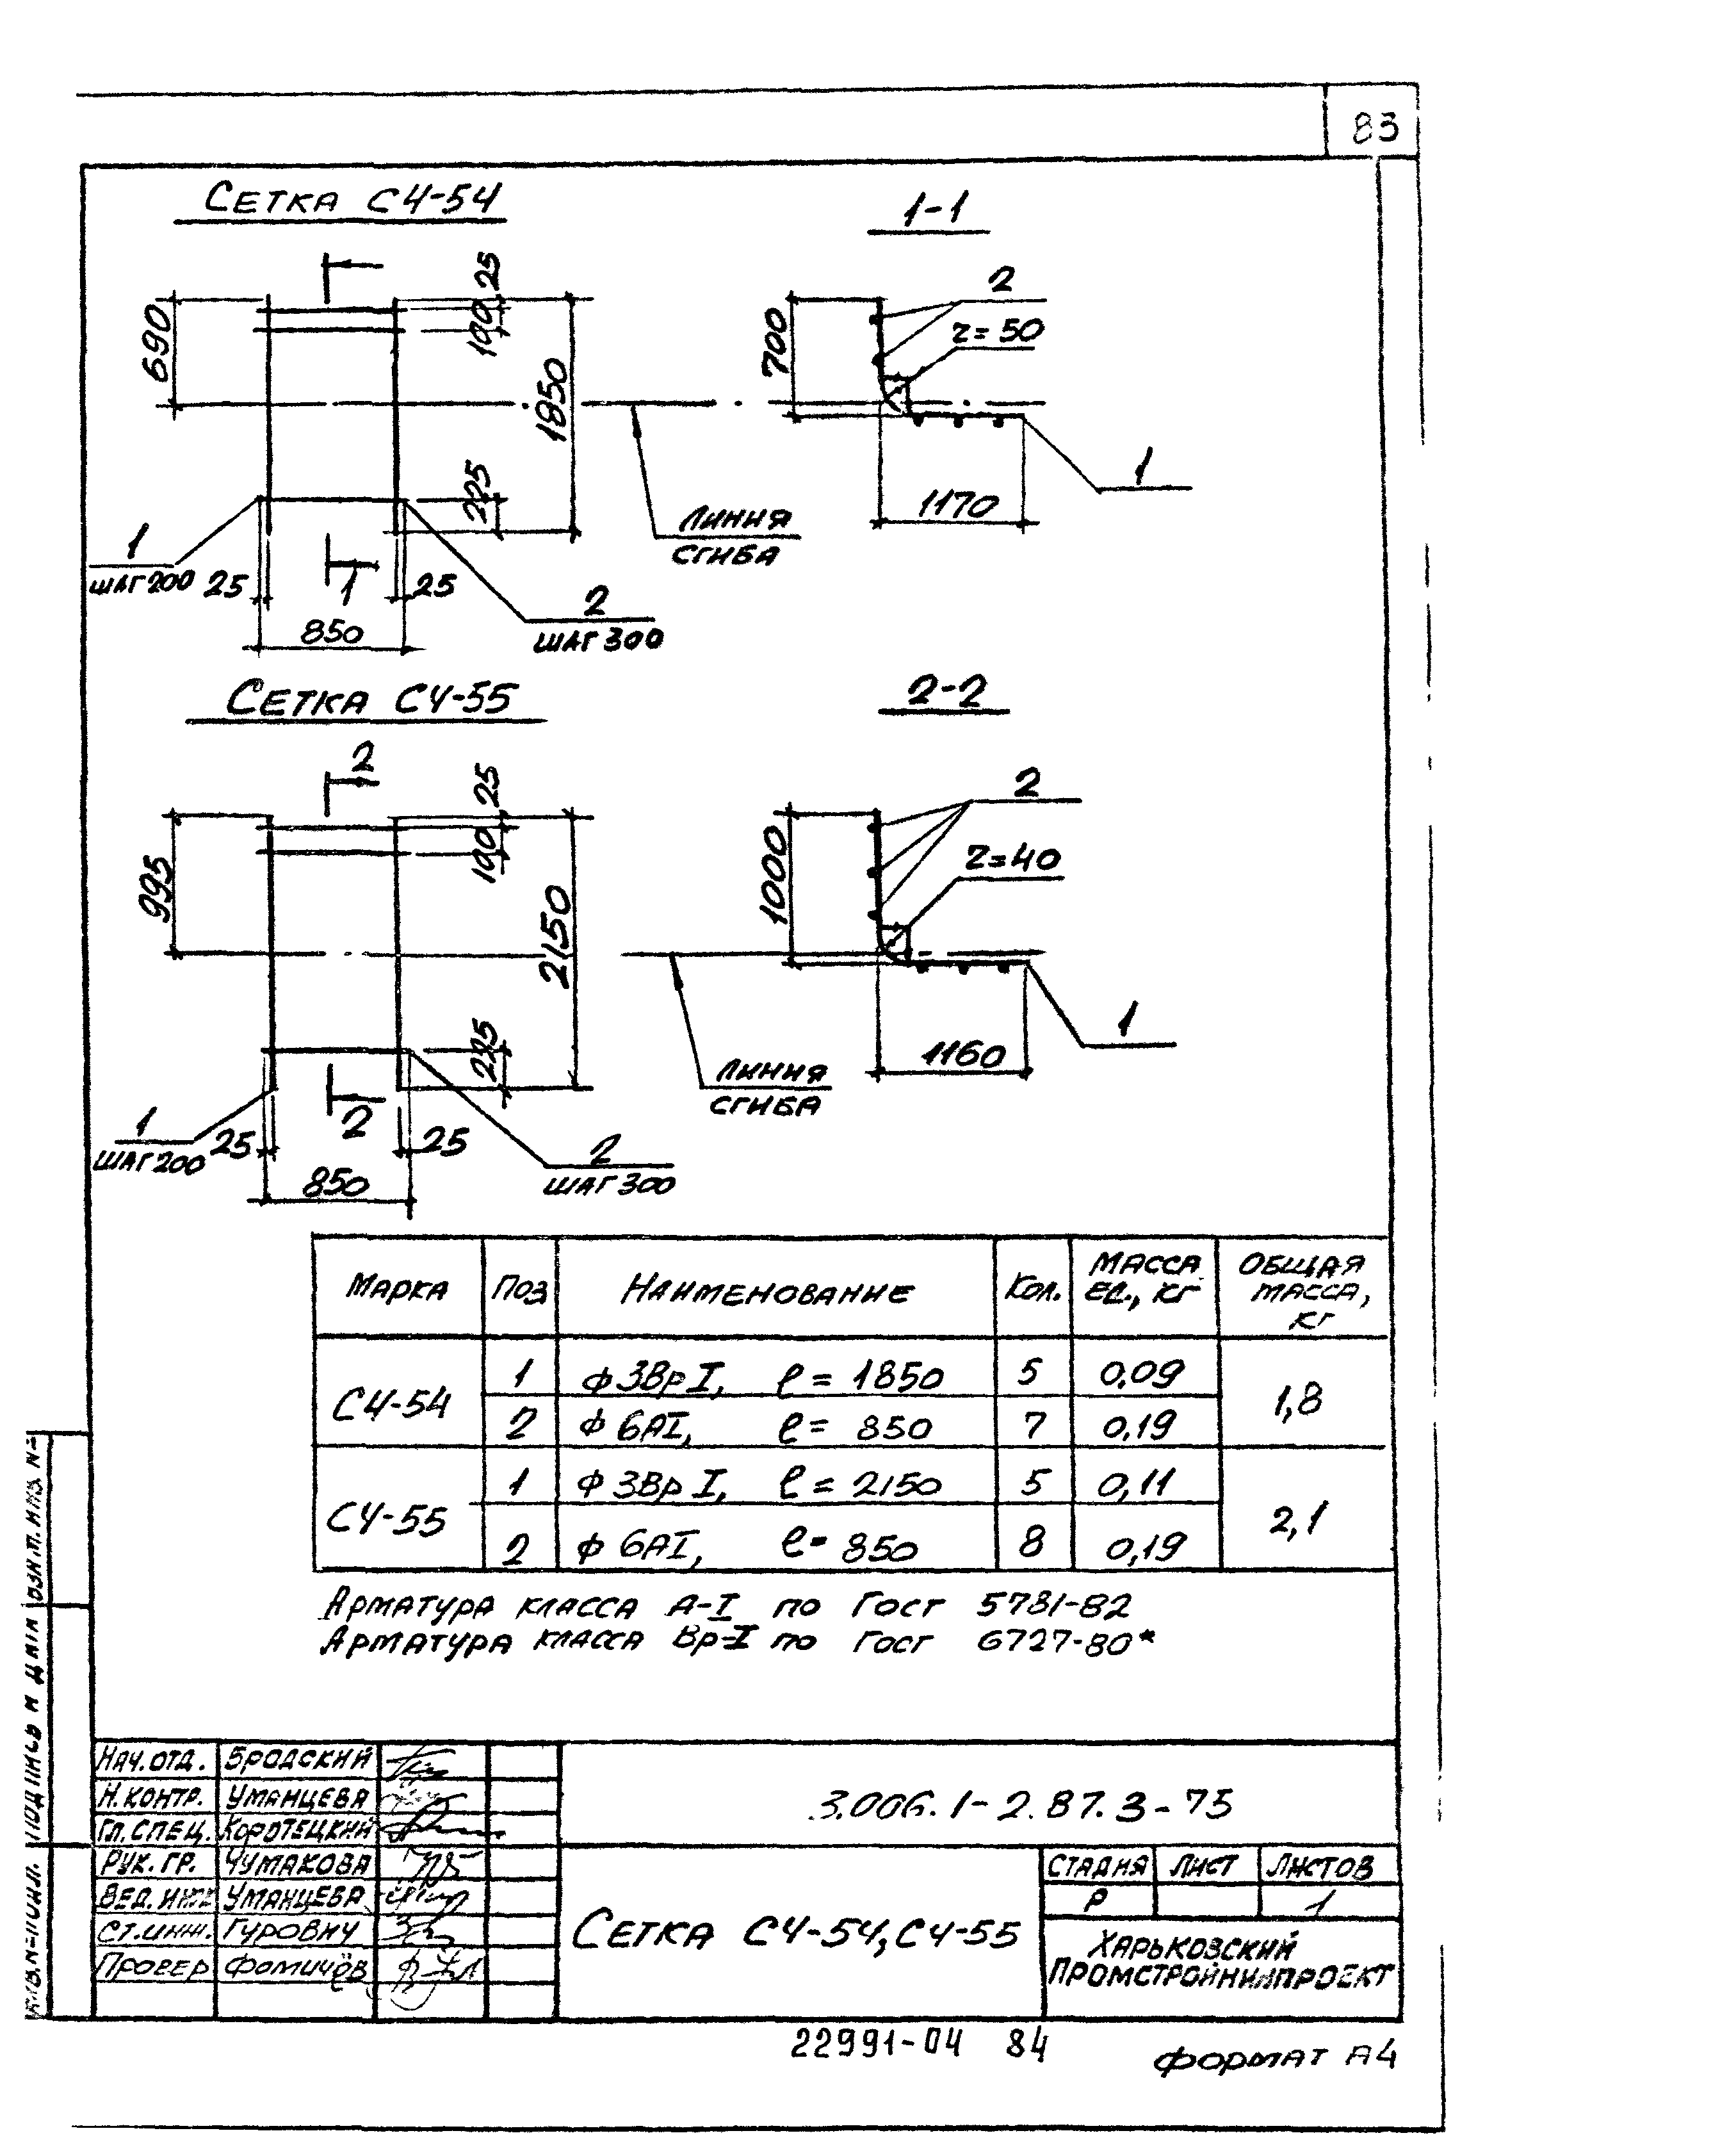 83
Сетка С4-54
1-1
25
100
690
1850
225
Линия
сгиба
1
шаг 200
25
1
25
850
2
шаг 300
2
r=50
700
1170
1
Сетка С4-55
2-2
2
25
100
995
2150
225
Линия
сгиба
1
шаг 200
25
2
25
850
2
шаг 300
2
r=40
1000
1160
1
Марка Поз Наименование Кол. Масса ед., кг Общая масса, кг
С4-54 1 ф 3ВрI, ℓ= 1850 5 0,09 1,8
2 ф 6АI, ℓ= 850 7 0,19
С4-55 1 ф 3ВрI, ℓ= 2150 5 0,11 2,1
2 ф 6АI, ℓ= 850 8 0,19
Арматура класса А-I по Гост 5781-82
Арматура класса Вр-I по Гост 6727-80*
Нач. отд. Бродский
Н. контр. Уманцева
Гл. спец. Коротецкий
Рук. гр. Чумакова
Вед. инж Уманцева
Ст. инж. Гурович
Провер Фомичёв
3.006.1-2.87.3-75
Сетка С4-54, С4-55
Стадия Лист Листов
Р 1
Харьковский
Промстройниипроект
22991-04 84
Формат А4
Инв.№ подл. Подпись и дата Взам. инв. №